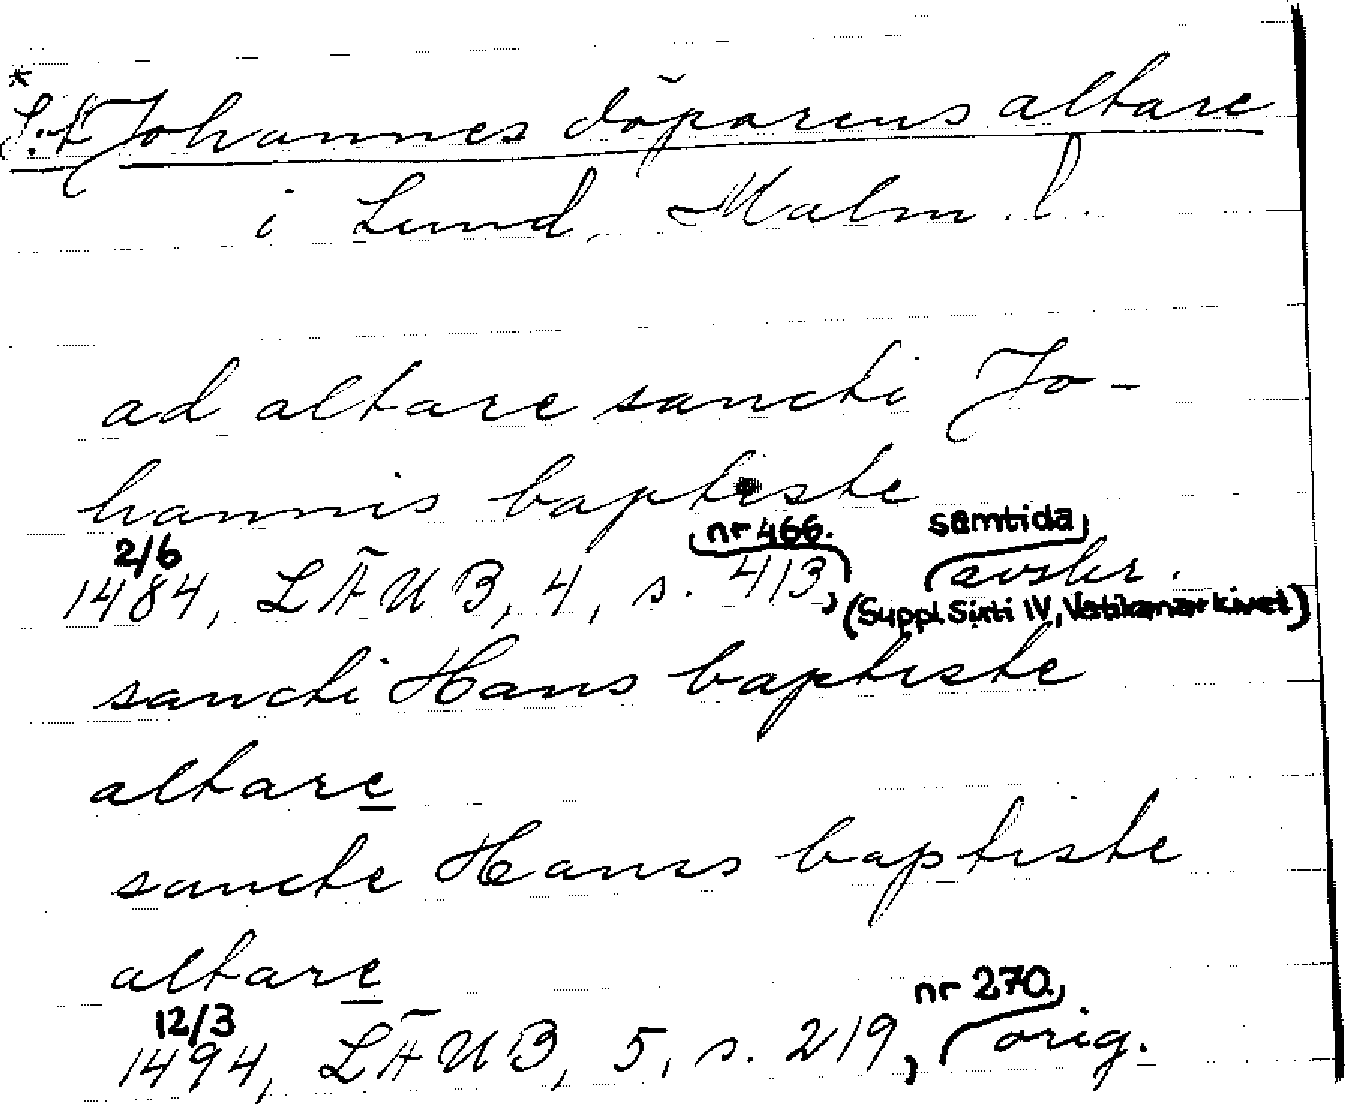 * S:t Johannes döparens altare
i Lund, Malm. l.
ad altare sancti Jo-
hannis baptiste
2/6 nr 466. samtida
1484, LÄUB, 4, s. 413, avskr.
(Suppl. Sixti IV, Vatikanarkivet)
sancti Hans baptiste
altare
sancte Hanss baptiste
altare
12/3 nr 270.,
1494, LÄUB, 5, s. 219, orig.